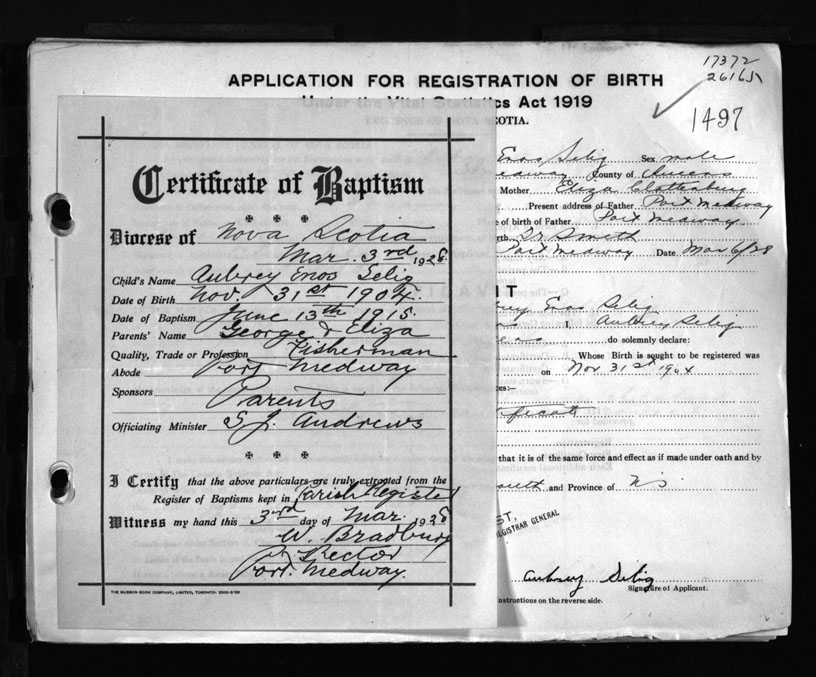 17372
26165
1497
APPLICATION FOR REGISTRATION OF BIRTH
Under the Vital Statistics Act 1919
COTIA.
Certificate of Baptism
Diocese of Nova Scotia
Mar. 3rd 1928
Child's Name Aubrey Enos Selig
Date of Birth Nov. 31st 1904.
Date of Baptism June 13th 1915.
Parents' Name George & Eliza
Quality, Trade or Profession Fisherman
Abode Port Medway
Sponsors Parents
Officiating Minister S. J. Andrews
I Certify that the above particulars are truly extracted from the
Register of Baptisms kept in Parish Register
Witness my hand this 3rd day of Mar. 1928
W. Bradbury
Rector
Port Medway.
THE MUSSON BOOK COMPANY, LIMITED, TORONTO
Enos Selig Sex male
edway County of Queens
Mother Eliza
Present address of Father Port Medway
e of birth of Father Port Medway
Smith
Port Medway Date Mar 6/28
VIT
rey Enos Selig
I, Aubrey Selig
do solemnly declare:
Whose Birth is sought to be registered was
on Nov 31st 1904
ces:-
ficate
that it is of the same force and effect as if made under oath and by
outh and Province of N.S.
ST,
REGISTRAR GENERAL
Aubrey Selig
Signature of Applicant.
Instructions on the reverse side.